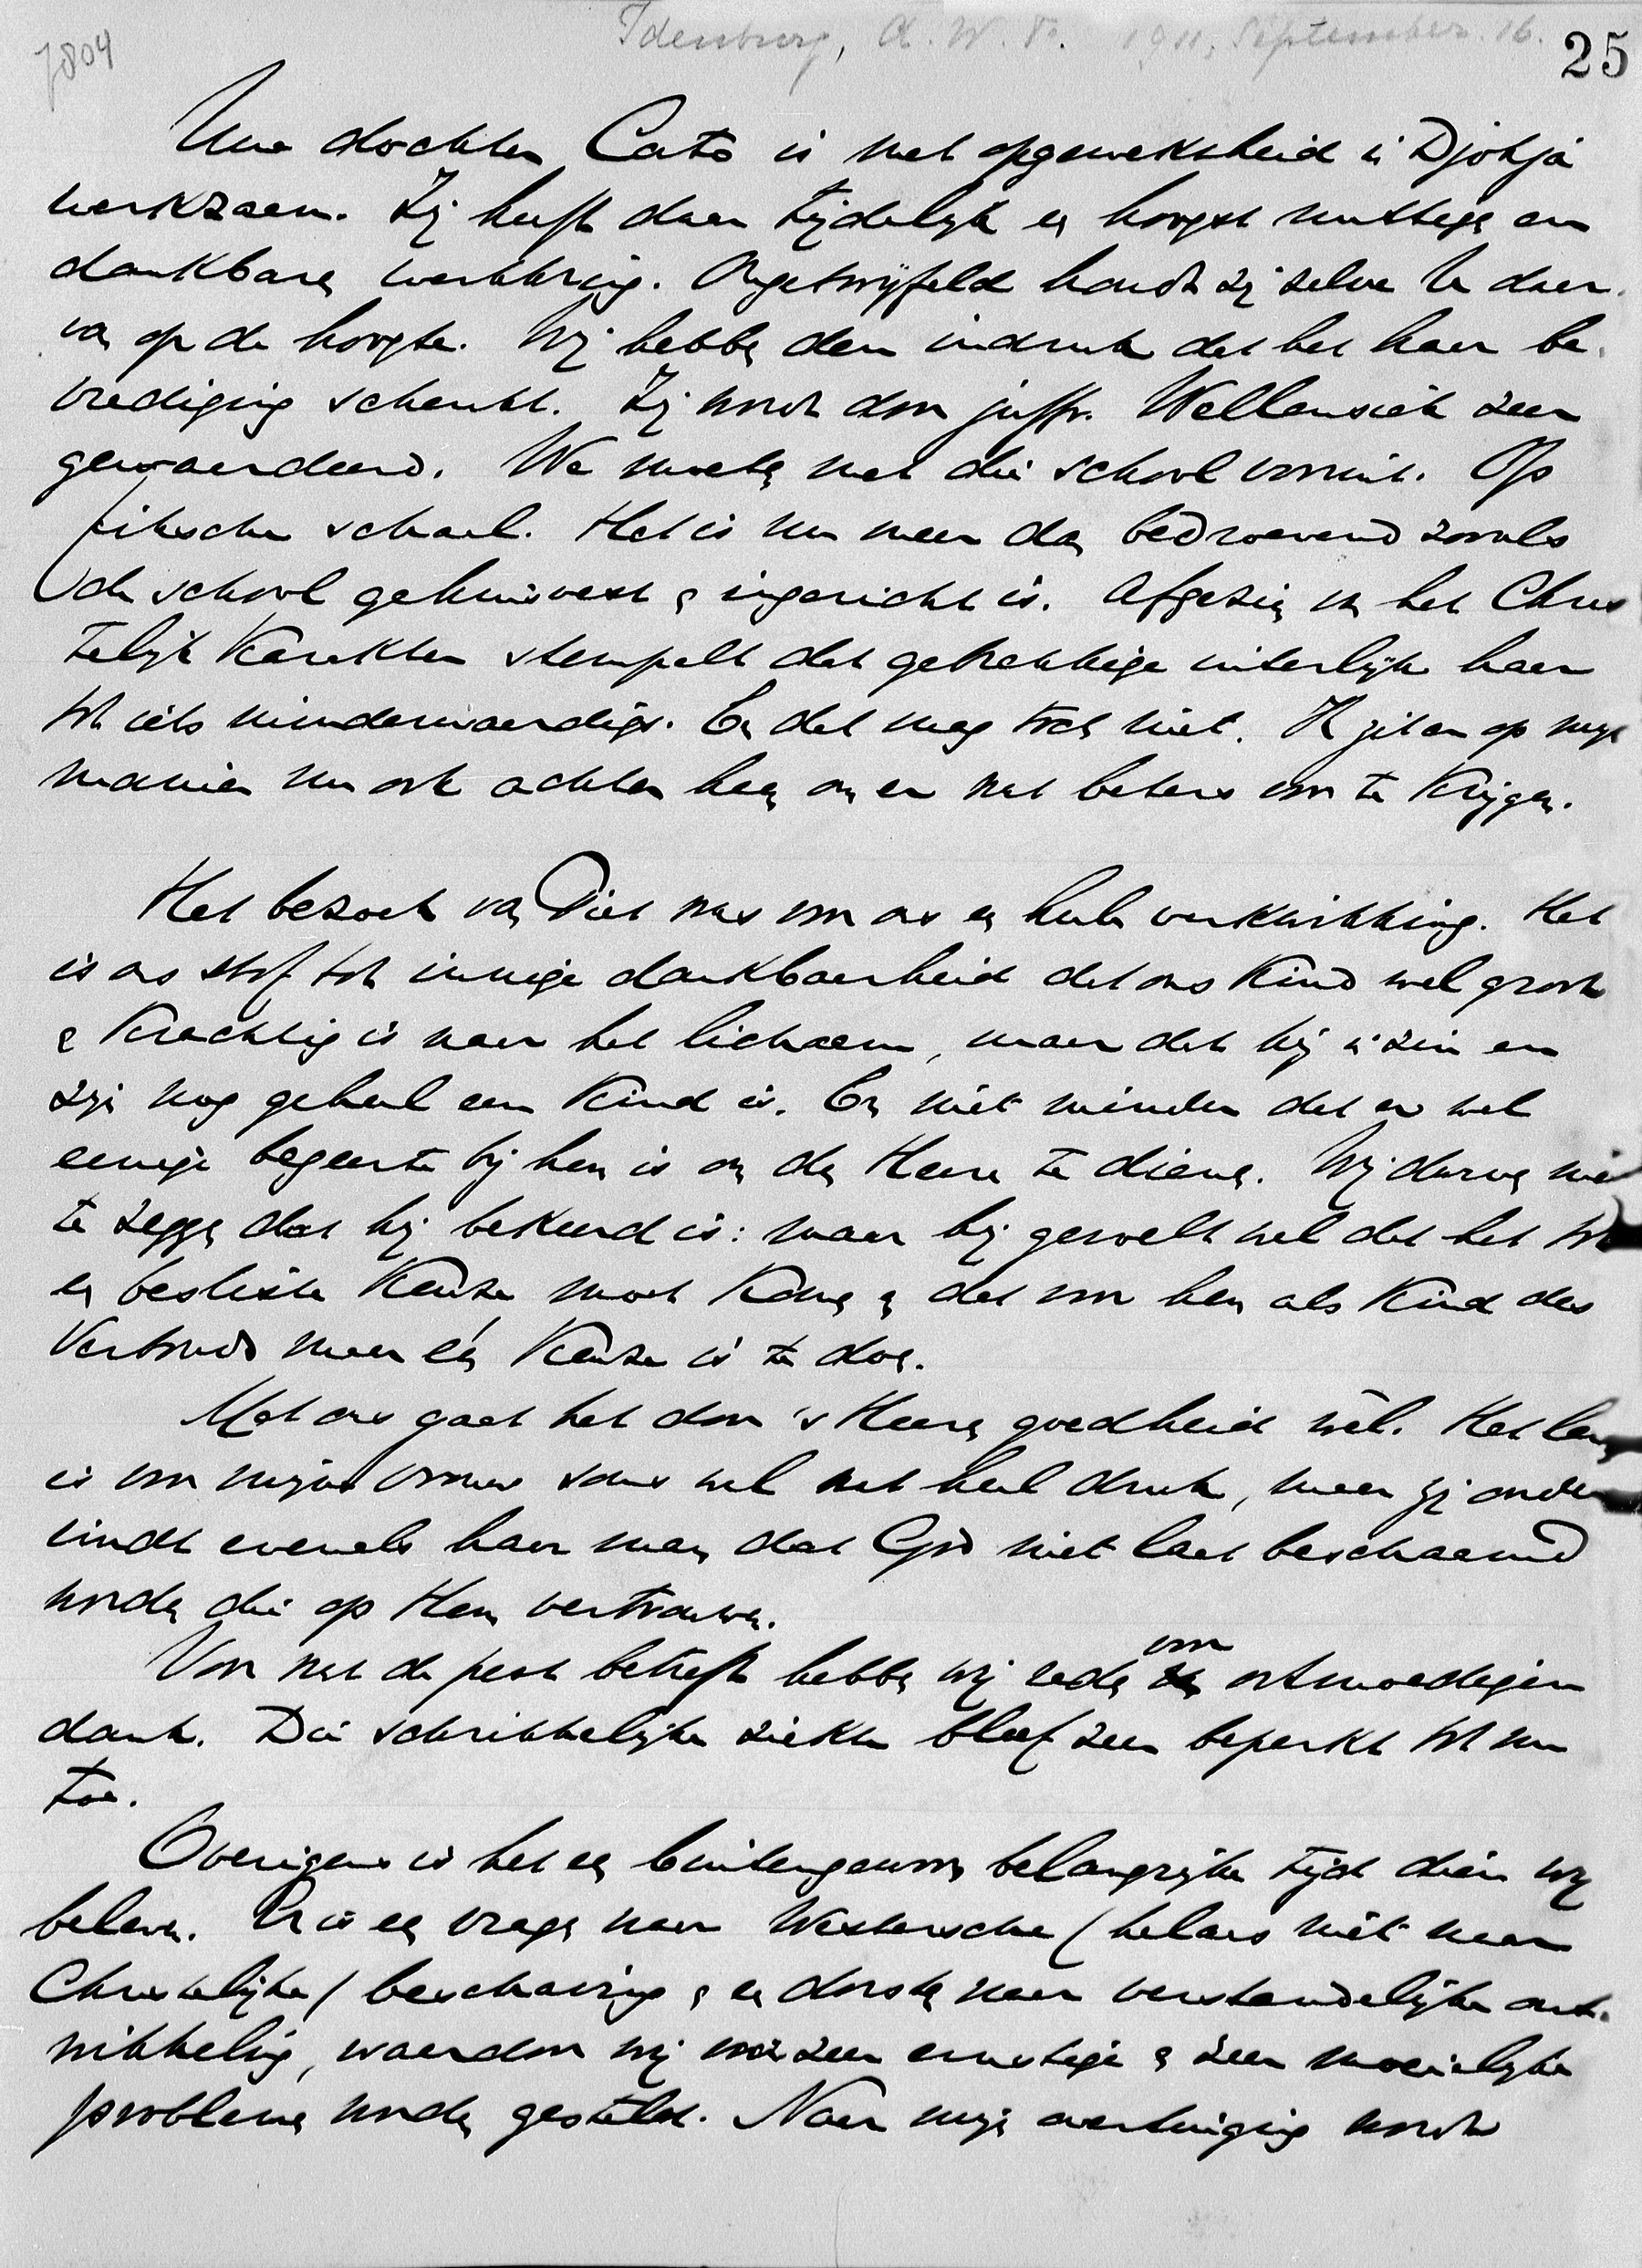 7804
Idenburg, A.W.F. 1911, September 16.
25
Uwe dochter Cato is met opgewektheid in Djokja
werkzaam. Zij heeft daar tijdelijk een hoogst nuttige en
dankbare werkkring. Ongetwijfeld houdt zij zelve U daar-
van op de hoogte. Wij hebben den indruk dat het haar be-
vrediging schenkt. Zij wordt door juffr. Wellensiek zeer
gewaardeerd. We moeten met die school vooruit. Op
flinsche schaal. Het is nu meer dan bedroevend zooals
de school gehuisvest & ingericht is. Afgezien van het Chris
telijk karakter stempelt dat gebrekkige uiterlijk haar
tot iets minderwaardigs. En dat mag toch niet. Ik zit er op mijn
manier nu ook achter heen om er wat beters voor te krijgen.
Het bezoek van Piet was voor ons een heele verkwikking. Het
is ons stof tot innige dankbaarheid dat ons kind wel groot
& krachtig is naar het lichaam, maar dat hij in zin en
zijn nog geheel een kind is. En niet minder dat er wel
eenige begeerte bij hem is om den Heere te dienen. Wij durven niet
te zeggen dat hij bekeerd is: maar hij gevoelt wel dat het tot
een besliste keuze moet komen & dat voor hem als kind des
Verbonds maar één keuze is te doen.
Met ons gaat het door 's Heeren goedheid wèl. Het leven
is voor mijne vrouw soms wel wat heel druk, maar zij onder
vindt evenals haar man dat God niet laat beschaamd
worden die op Hem vertrouwen.
Voor wat de pest betreft hebben wij reden voor ootmoedigen
dank. Die schrikkelijke ziekte bleef zeer beperkt tot nu
toe.
Overigens is het een buitengewoon belangrijke tijd dien wij
beleven. Er is een vragen naar Westersche (helaas niet naar
Christelijke) beschaving & een dorsten naar verstandelijke ont-
wikkeling, waardoor wij voor zeer ernstige & zeer moeielijke
problemen worden gesteld. Naar mijn overtuiging wordt